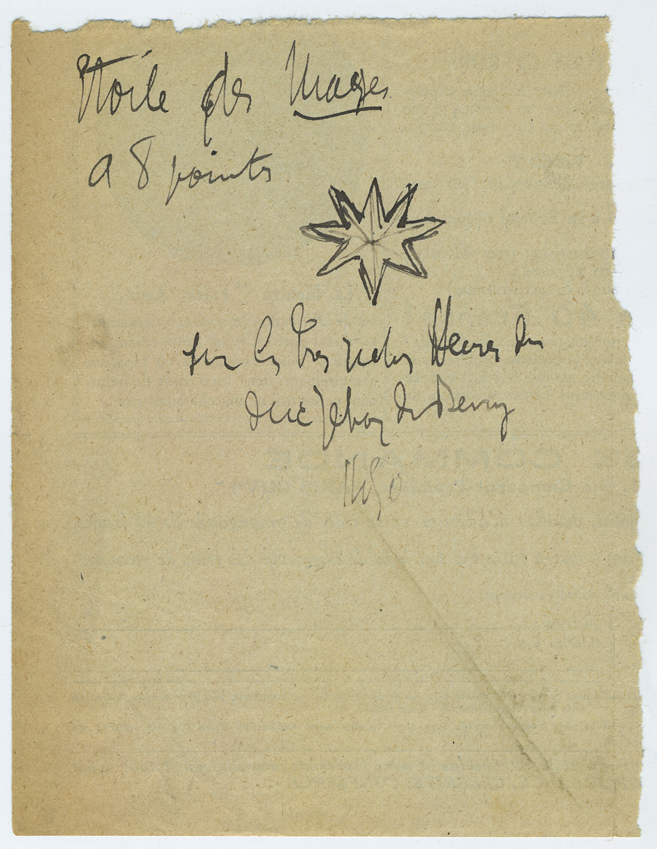 Etoile des Mages
a 8 points
sur les Tres riches Heures du
duc Jehan de Berry